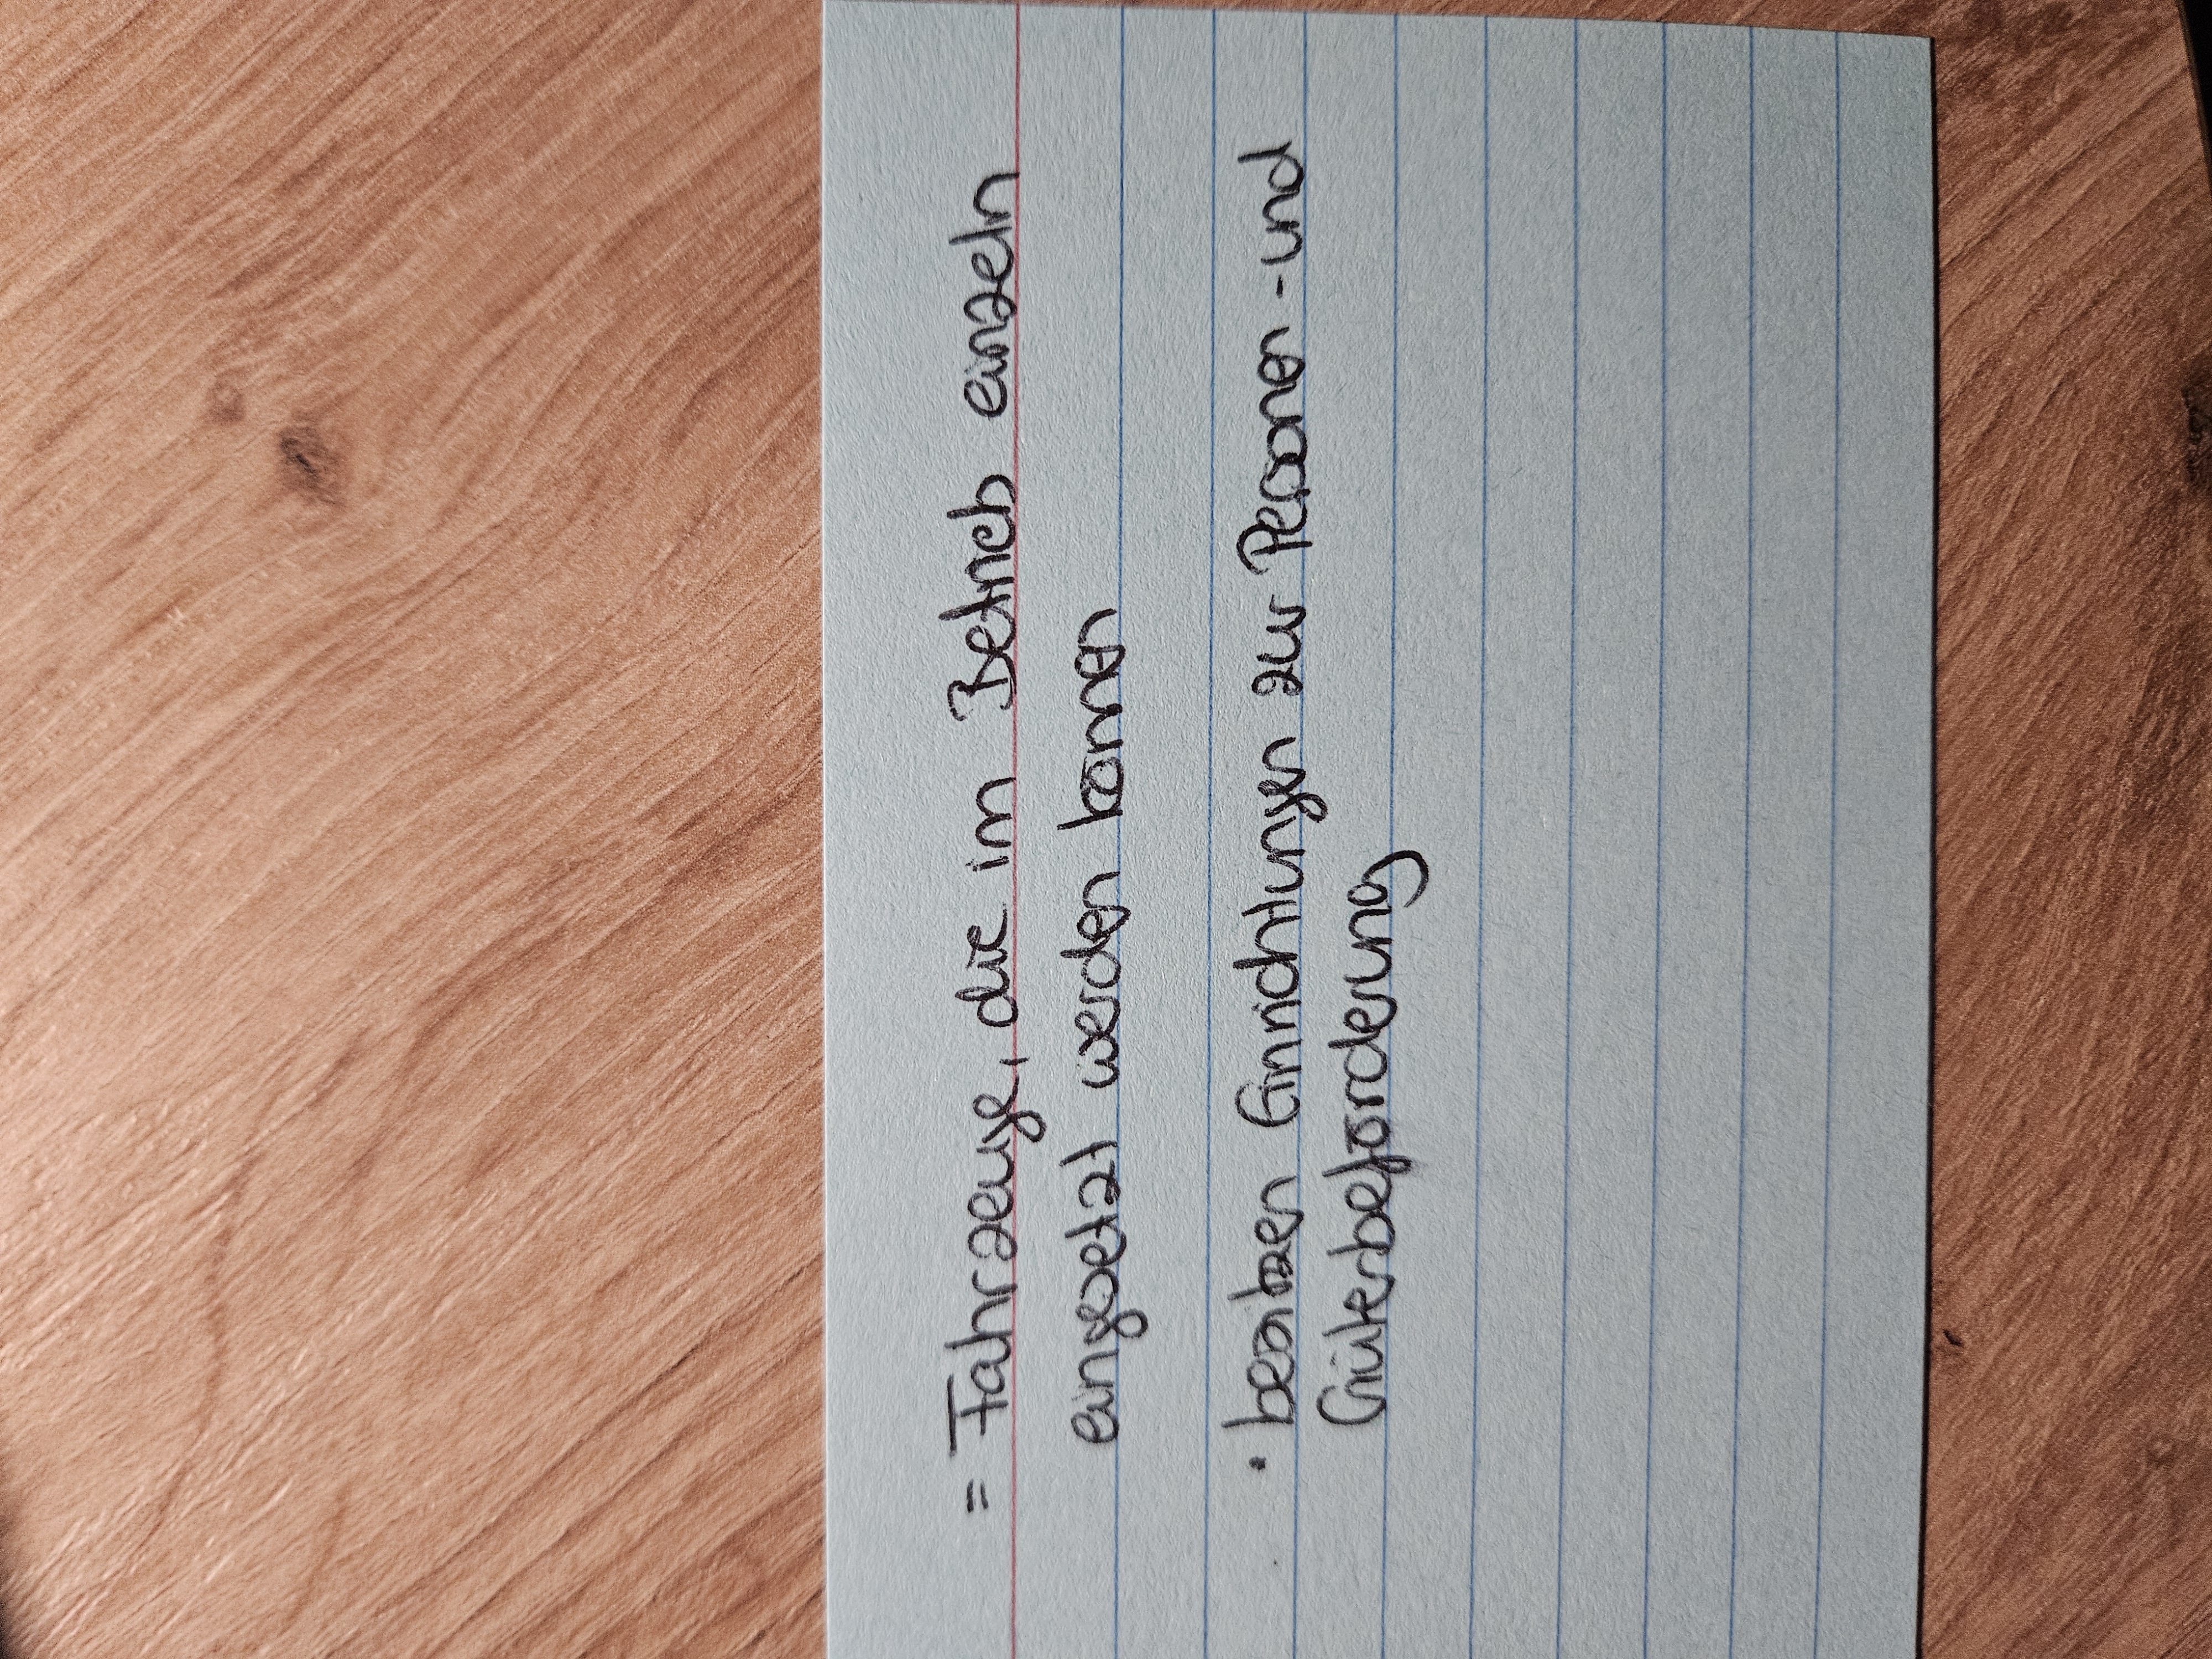 = Fahrzeuge, die im Betrieb einzeln
eingesetzt werden können
• besitzen Einrichtungen zur Personen - und
Güterbeförderung